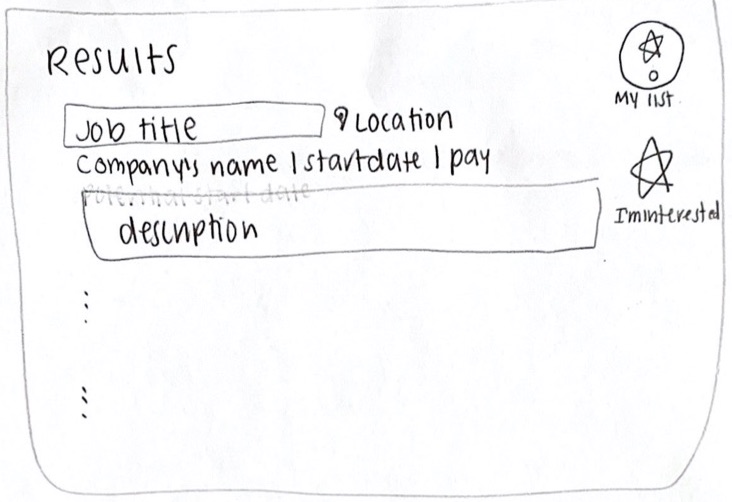 Results
My list
Job title
Location
Company's name | startdate | pay
Potential start date
description
I'm interested